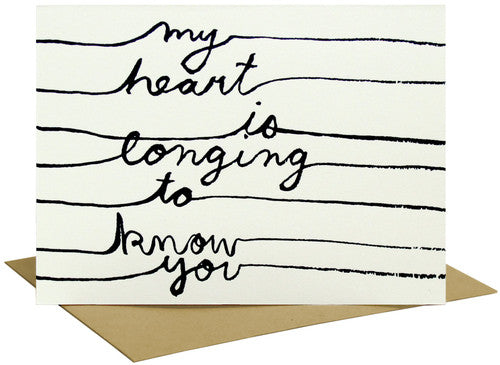 my
heart
is
longing
to
know
you